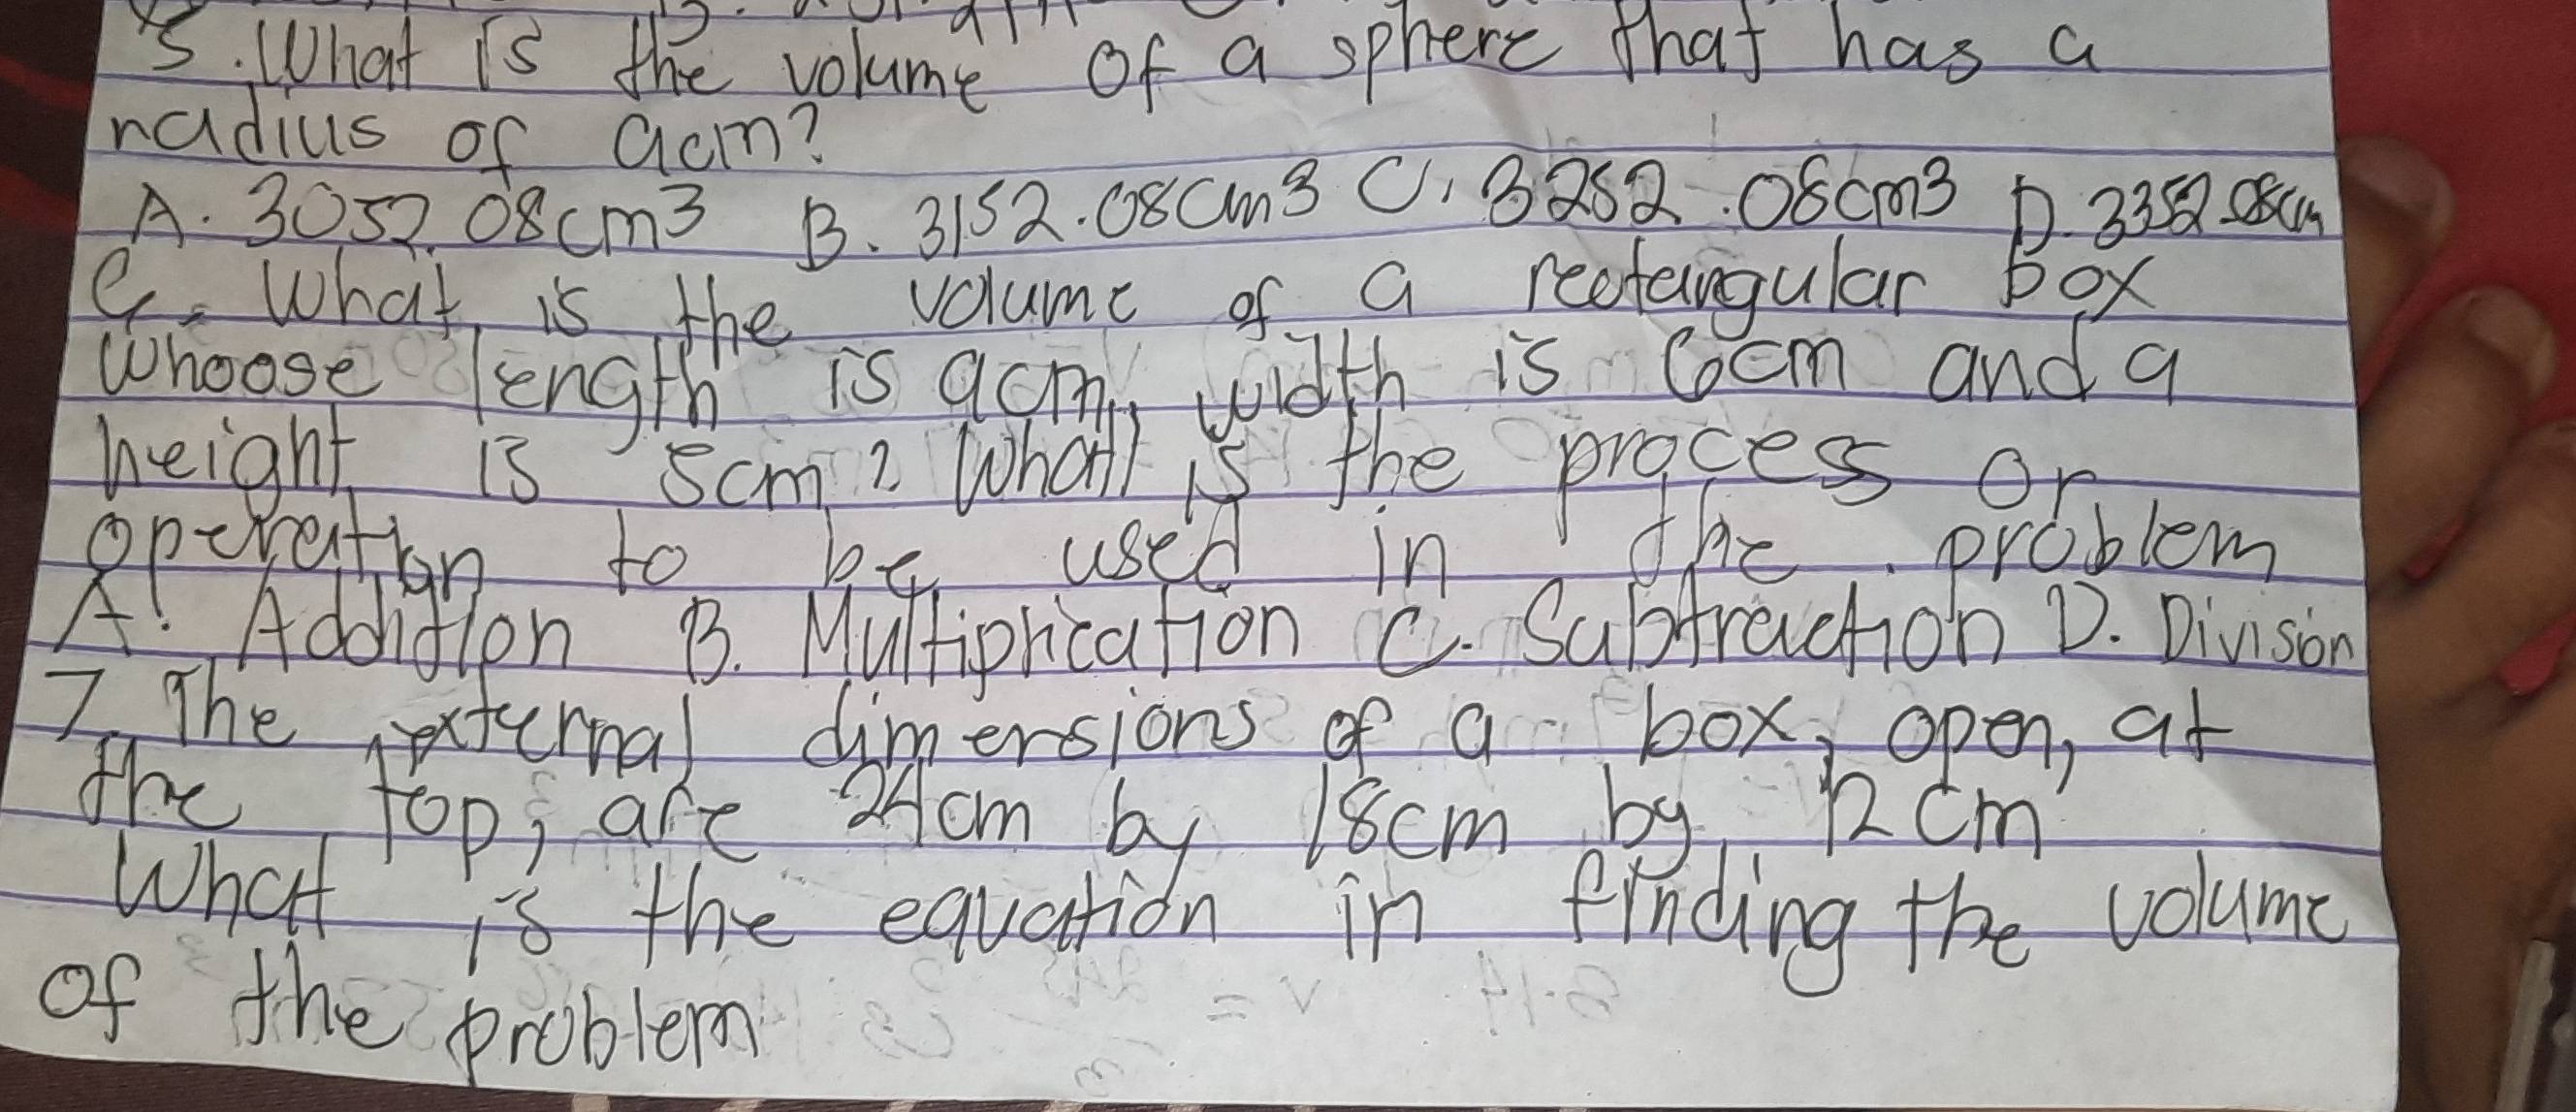 5. What is the volume of a sphere that has a
radius of 9cm?
A. 3052.08cm3 B. 3152.08cm3 C. 3252.08cm3 D. 3352.08cm
6. What is the volume of a rectangular box
whoose length is 9cm, width is 6cm and a
height is 5cm? What is the process or
operation to be used in the problem
A. Addition B. Multiplication C. Subtraction D. Division
7. The external dimensions of a box, open, at
the top, are 24cm by 18cm by 12cm
What is the equation in finding the volume
of the problem